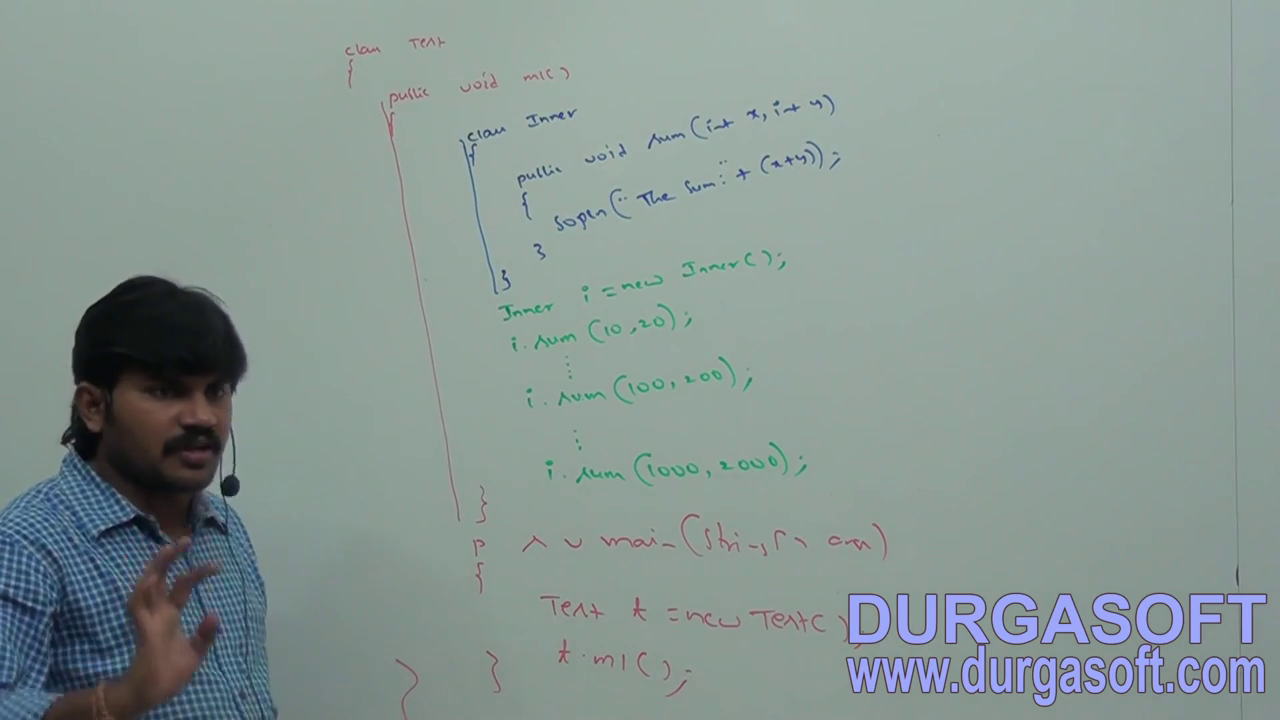 class Test
{
public void m1()
{
class Inner
{
public void sum(int x, int y)
{
sopln("The sum:" + (x+y));
}
}
Inner i = new Inner();
i.sum(10,20);
⋮
i.sum(100,200);
⋮
i.sum(1000,2000);
}
p s v main(String[] args)
{
Test t = new Test();
t.m1();
}
}
DURGASOFT
www.durgasoft.com